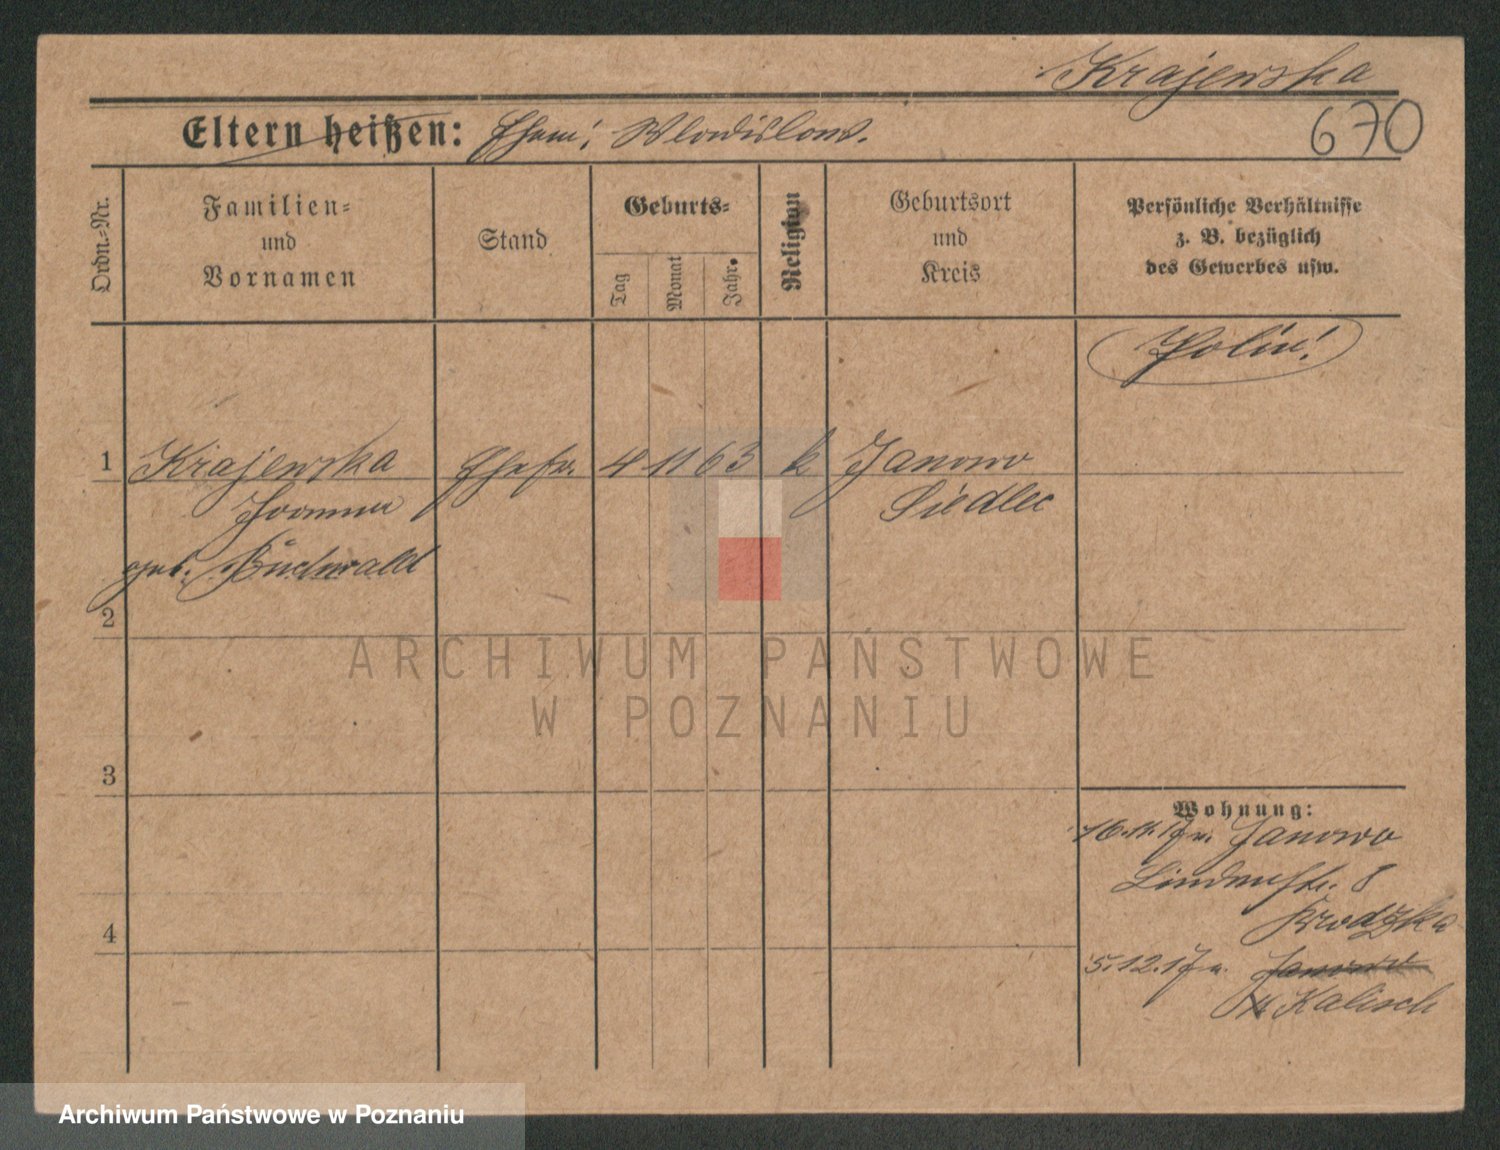 Krajewska
670
Eltern heißen: Ehem: Wladislaw.
Ordn.-Nr.
Familien-
und
Vornamen
Stand
Geburts-
Tag
Monat
Jahr.
Religion
Geburtsort
und
Kreis
Persönliche Verhältnisse
z. B. bezüglich
des Gewerbes usw.
1
Krajewska
Ehefr.
4
11
63
k
Janowo
Joanna
Siedlec
geb. Buchwald
2
3
4
Wohnung:
16.11.17 v. Janowo
Lindenstr. 8
5.12.17 n. Janowo
n Kalisch
ARCHIWUM PAŃSTWOWE
W POZNANIU
Archiwum Państwowe w Poznaniu